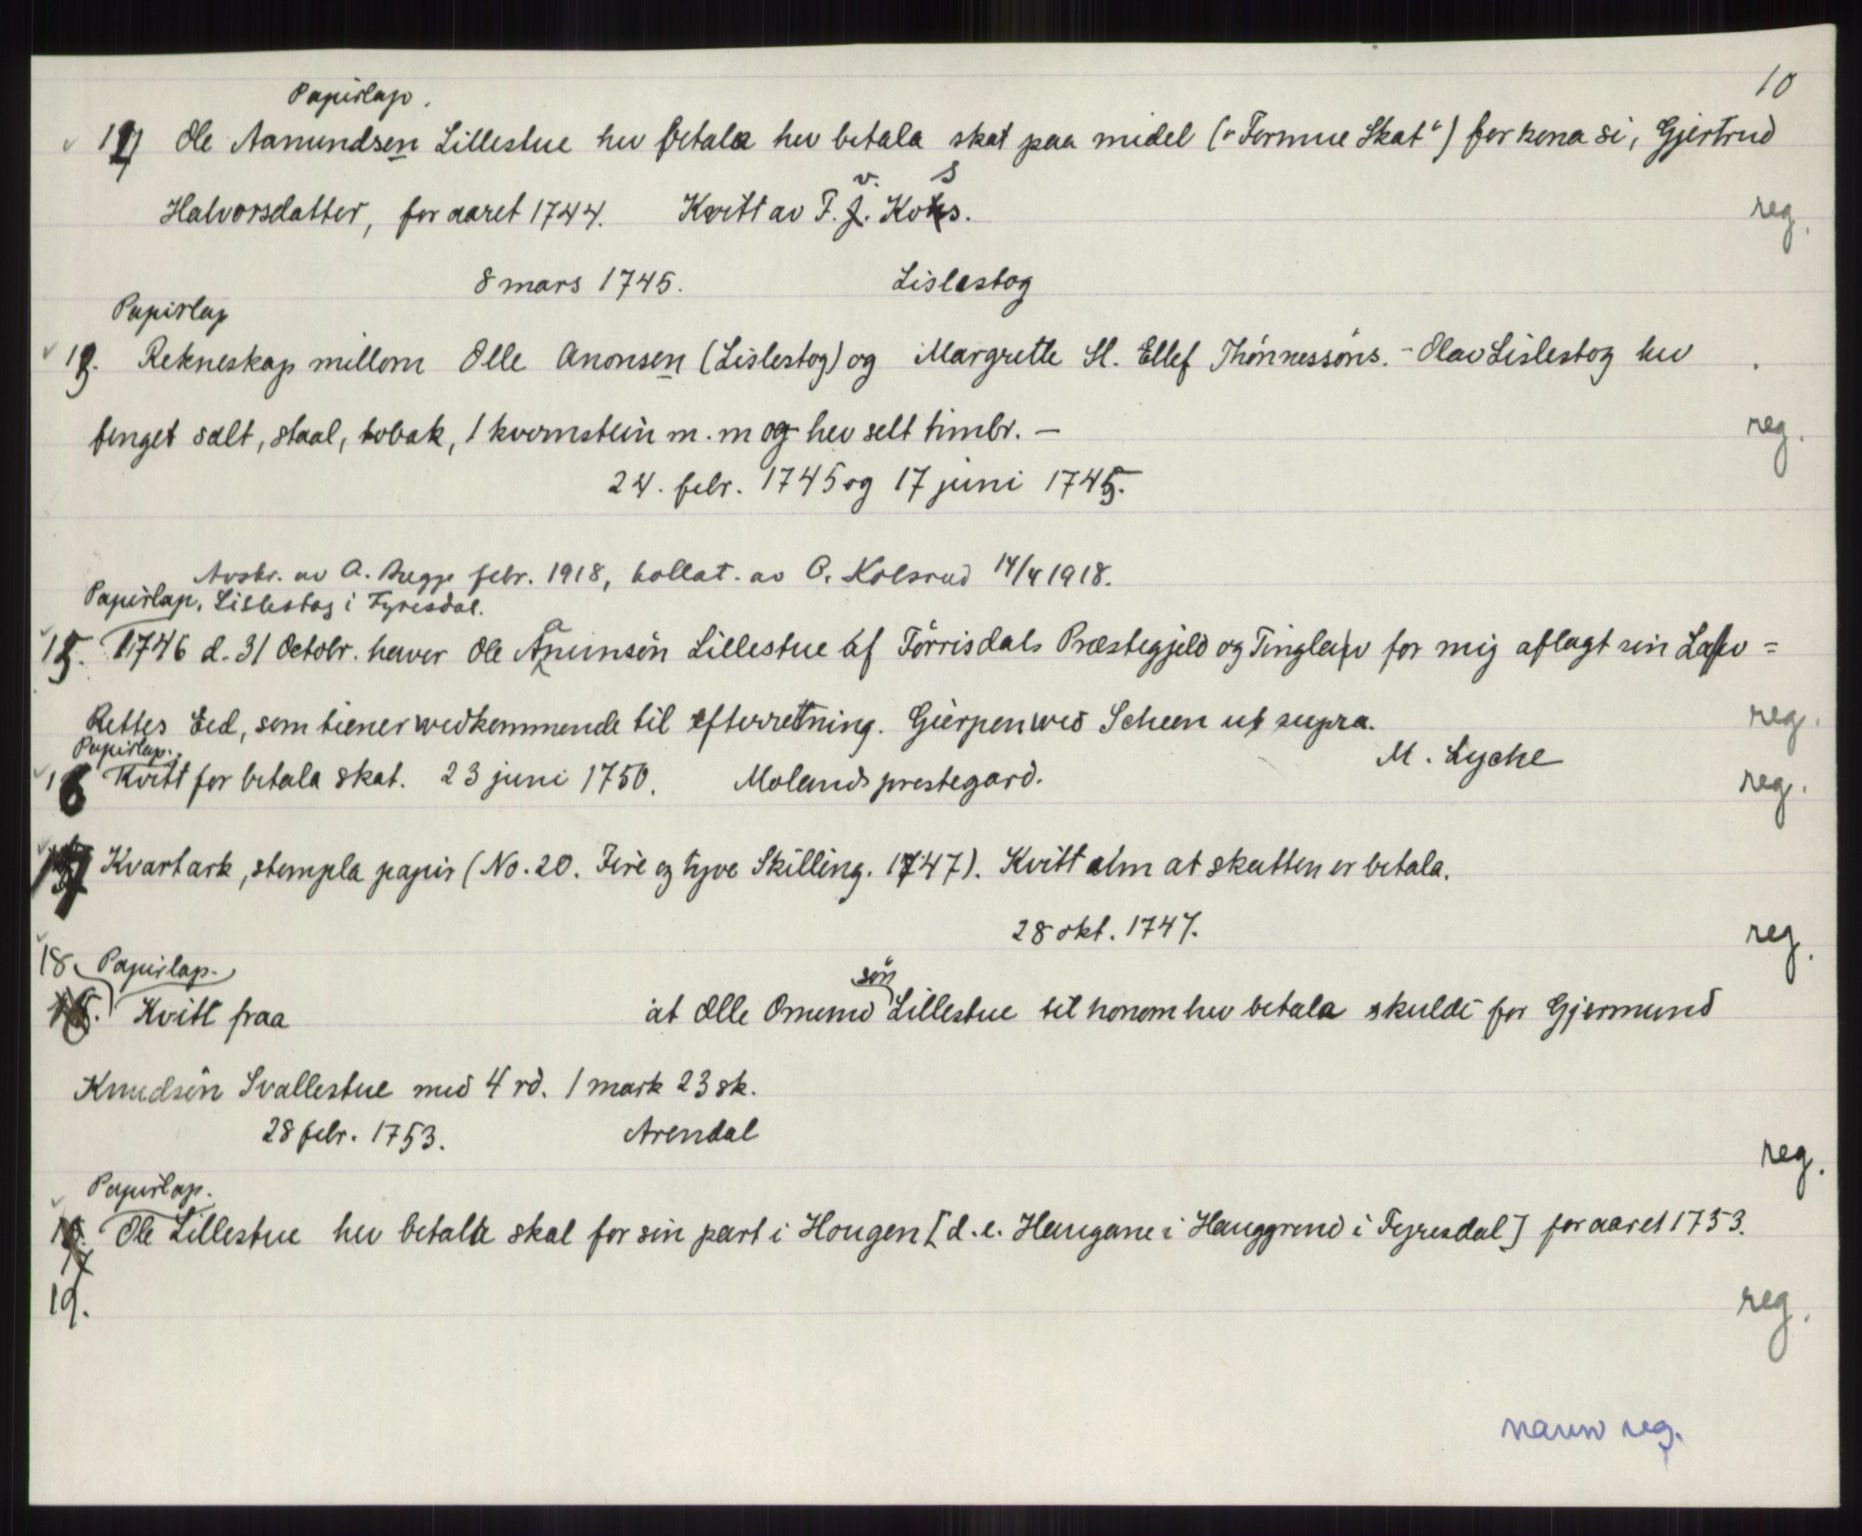 10
Papirlap.
Ole Aanundsen Lillestue hev betala hev betala skat paa midel („Formue Skat“) for kona si, Gjertrud
Halvorsdatter, for aaret 1744. Kvitt av T. v. Koss. reg.
8 mars 1745. Lislestog
Papirlap
Rekneskap millom Olle Anonsen (Lislestog) og Margrette Sl. Ellef Thönnessöns. - Olav Lislestog hev
fenget salt, staal, tobak, 1 kvernstein m. m og hev selt timbr. — reg.
24. febr. 1745 og 17 juni 1745.
Avskr. av A. Bugge febr. 1918, kollat. av O. Kolsrud 14/4 1918.
Papirlap. Lislestog i Fyresdal.
15. 1746 d. 31 Octobr. haver Ole Anunsön Lillestue af Törrisdals Præstegjeld og Tinglav for mig aflagt sin Lav=
Rettes Eed, som tiener vedkommende til efterretning. Gierpen ved Scheen ut supra. reg.
M. Lyche
Papirlap.
16 Kvitt for betala skat. 23 juni 1750. Molands prestegard. reg.
17 Kvartark, stempla papir (No. 20. Fire og tyve Skilling. 1747). Kvitt um at skatten er betala.
28 okt. 1747. reg.
18. Papirlap.
Kvitt fraa at Olle Omundsön Lillestue til honom hev betala skuldi for Gjermund
Knudsön Svallestue med 4 rd. 1 mark 23 sk.
28 febr. 1753. Arendal reg.
Papirlap.
Ole Lillestue hev betalt skat for sin part i Hougen [d. e. Haugane i Hauggrend i Fyresdal] for aaret 1753.
19. reg.
navn reg.